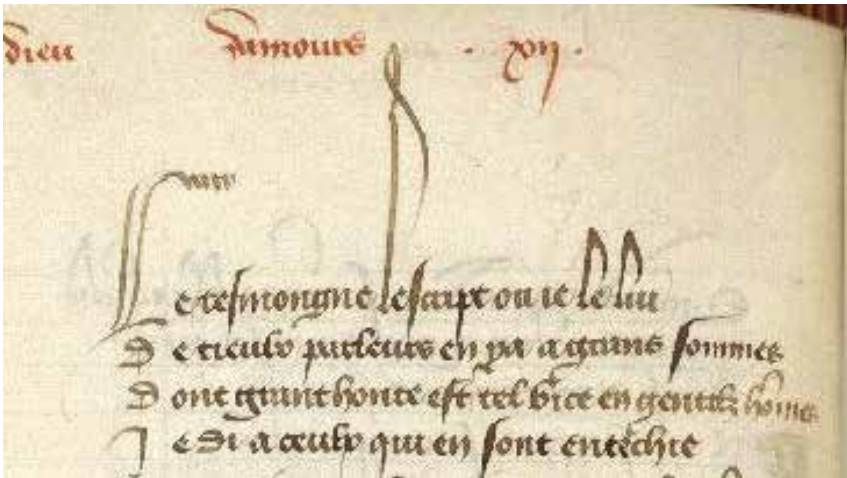 dieu damours . xij .
Le tesmongne lescript ou ie le luy
De tieulx parleurs en ya a grans sommes
Dont grant honte est tel vice en gentilz hommes
Ie di a ceulx qui en sont entechie